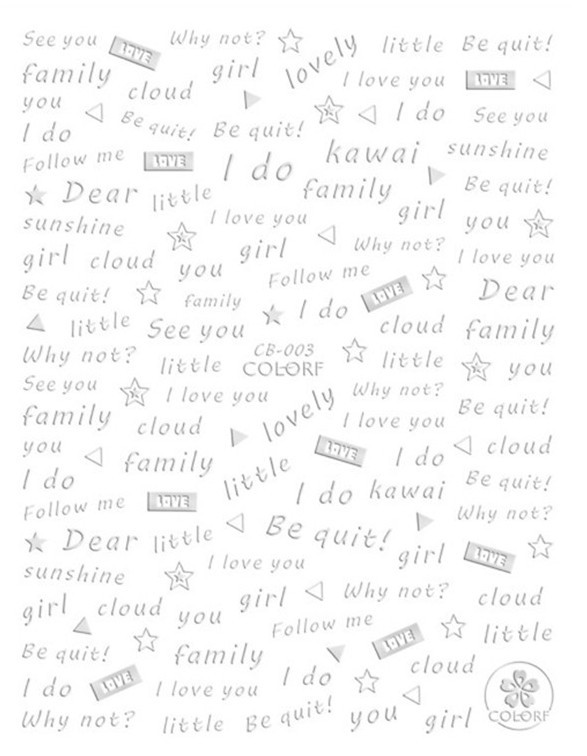 See you LOVE Why not? lovely little Be quit!
family cloud girl I love you LOVE
you Be quit! Be quit! I do See you
I do
Follow me LOVE I do kawai sunshine
Dear little family Be quit!
sunshine I love you girl you
girl cloud you girl Why not? I love you
Be quit! family Follow me LOVE Dear
little See you I do cloud family
Why not? little CB-003 little you
COLORF
See you I love you Why not? Be quit!
family cloud lovely I love you
you family LOVE I do cloud
I do little I do kawai Be quit!
Follow me LOVE Why not?
Dear little Be quit! girl LOVE
sunshine I love you
girl cloud you girl Why not? cloud
Be quit! family Follow me LOVE little
I do LOVE I love you I do cloud
Why not? little Be quit! you girl COLORF